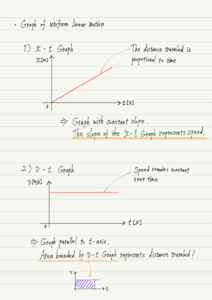 • Graph of uniform linear motion
1) x - t Graph
x[m]
The distance traveled is
propotional to time
0
t[s]
⇒ Graph with constant slope.
The slope of the x-t Graph represents speed.
2) v - t Graph
v[m/s]
Speed remains constant
over time
0
t[s]
⇒ Graph parallel to t-axis.
Area bounded by v-t Graph represents distance traveled!
v
t